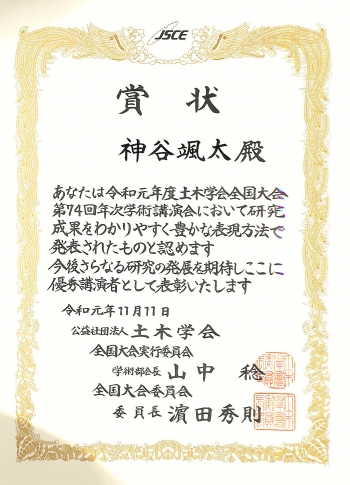 JSCE
賞状
神谷颯太殿
あなたは令和元年度土木学会全国大会
第74回年次学術講演会において研究
成果をわかりやすく豊かな表現方法で
発表されたものと認めます
今後さらなる研究の発展を期待しここに
優秀講演者として表彰いたします
令和元年11月11日
公益社団法人 土木学会
全国大会実行委員会
学術部会長 山中 稔
全国大会委員会
委員長 濵田秀則